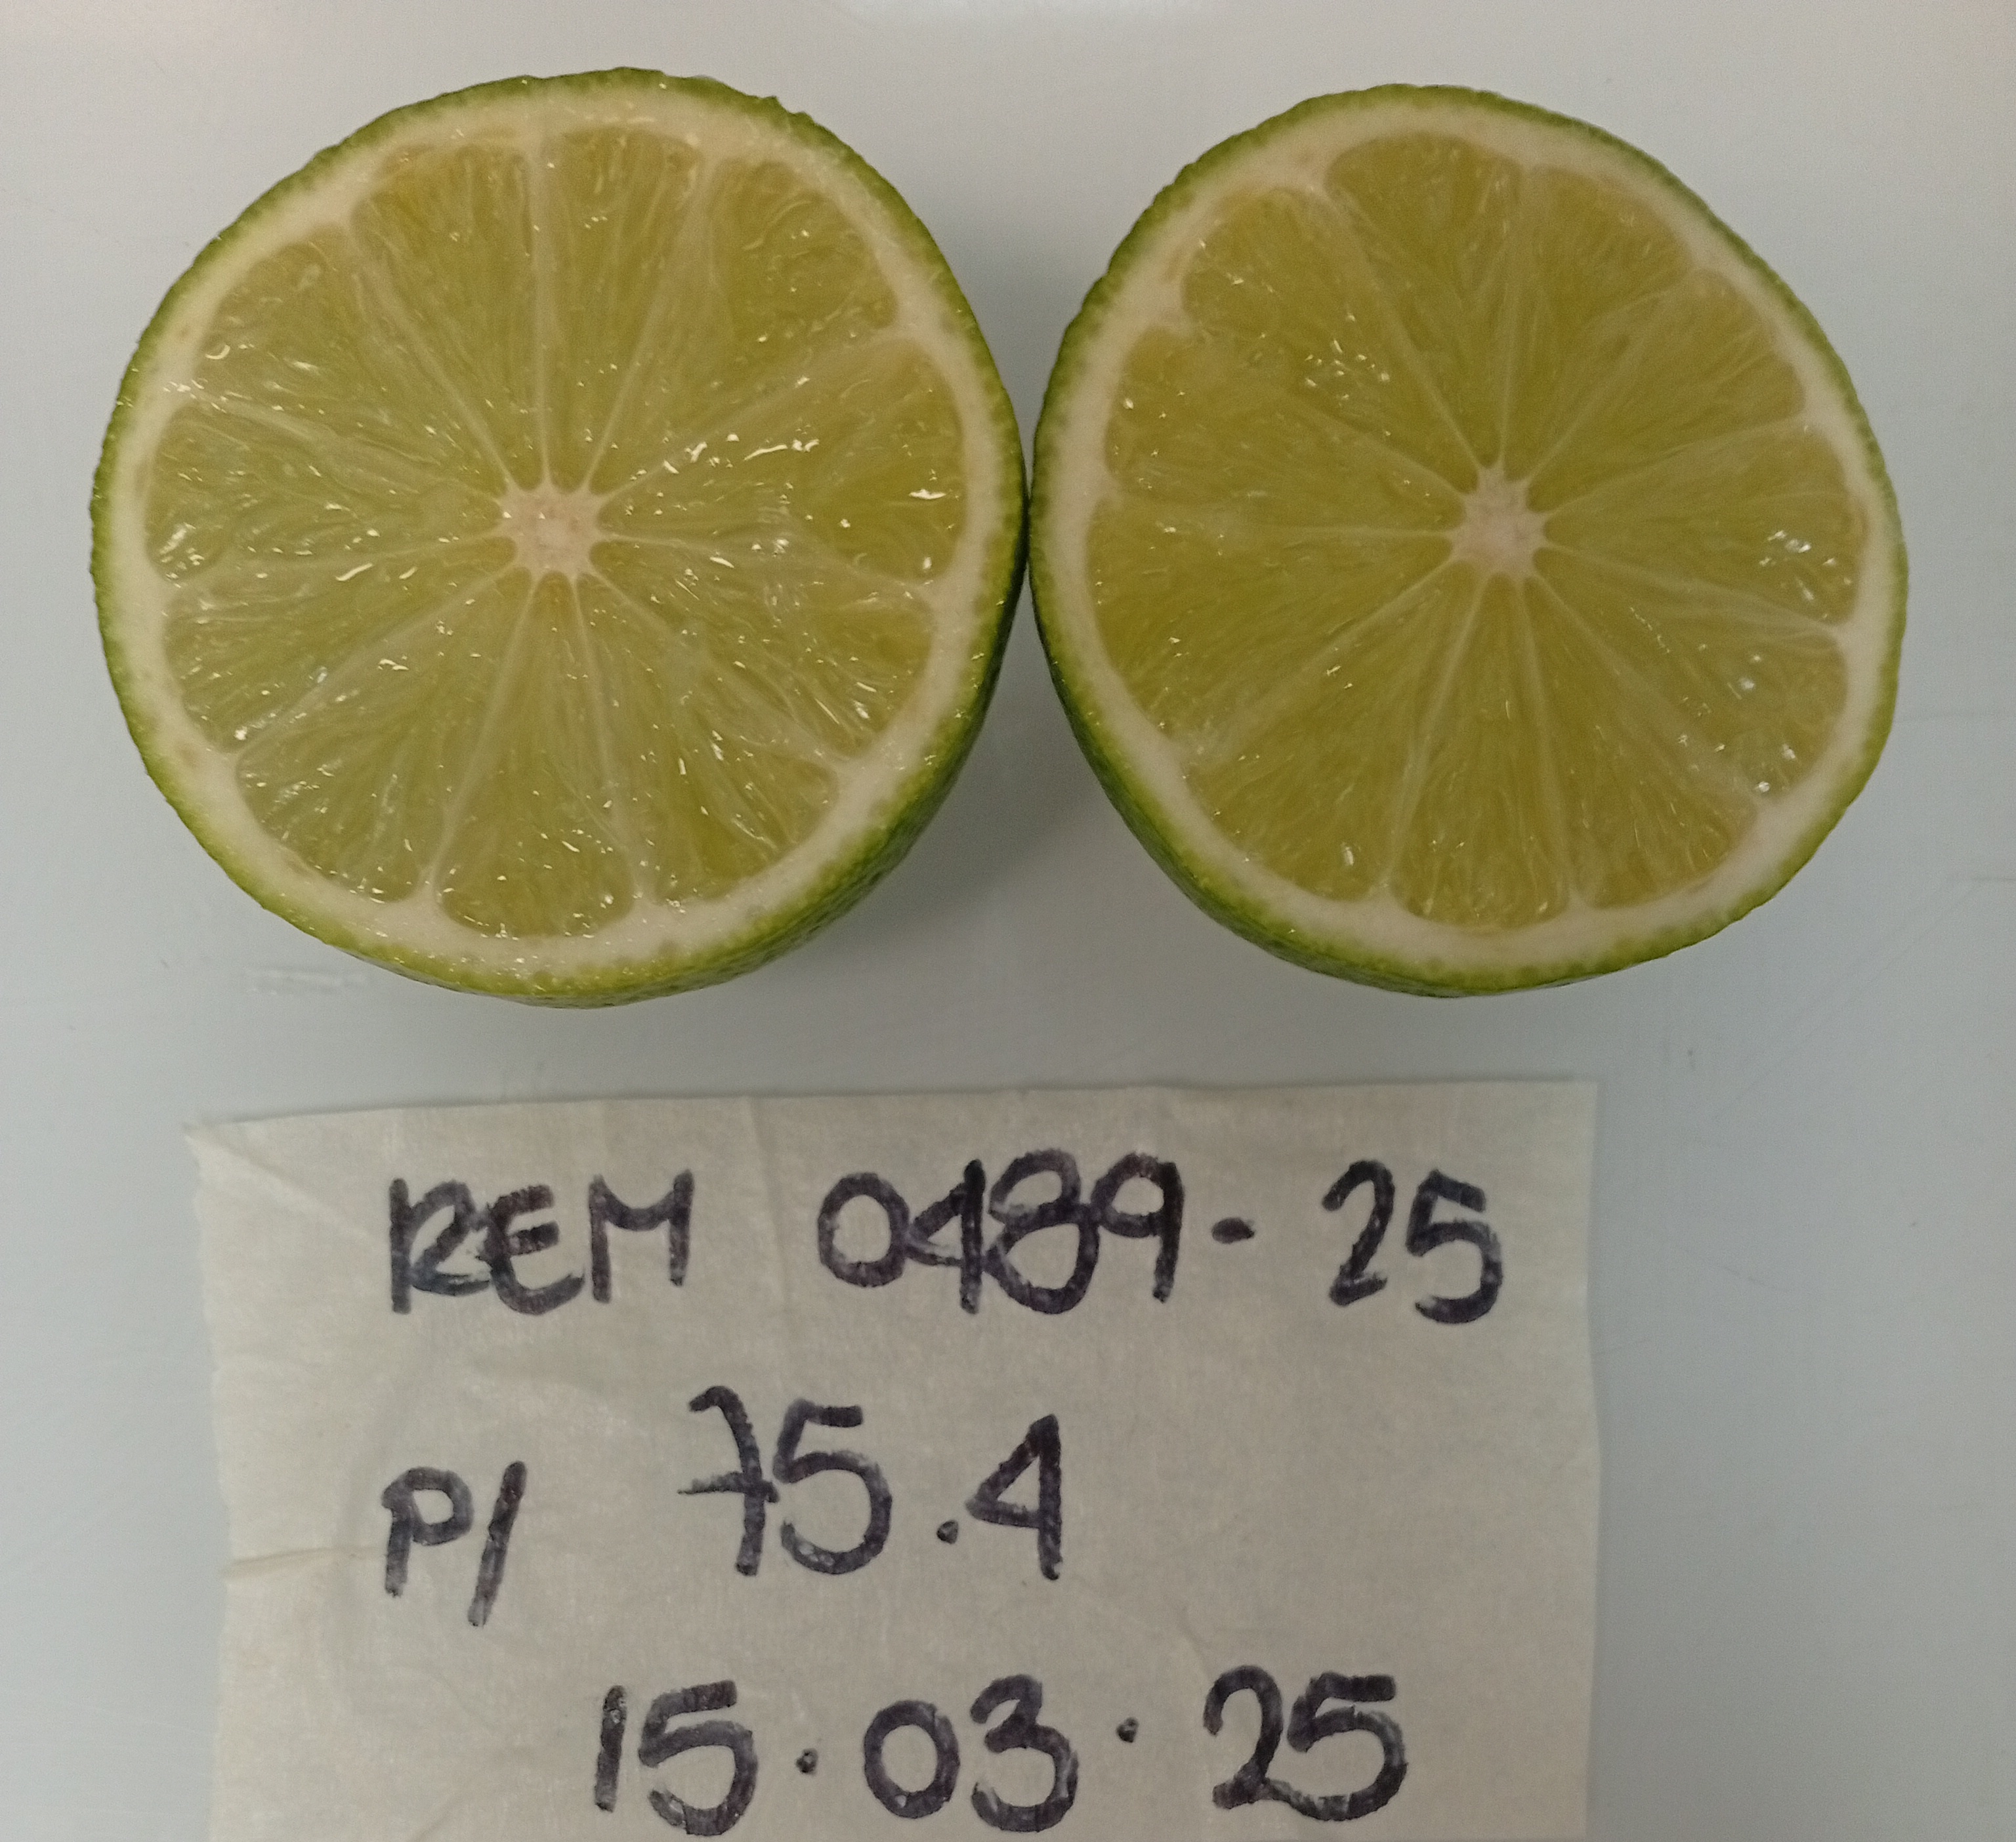 REM 0489-25
P/ 75.4
15.03.25